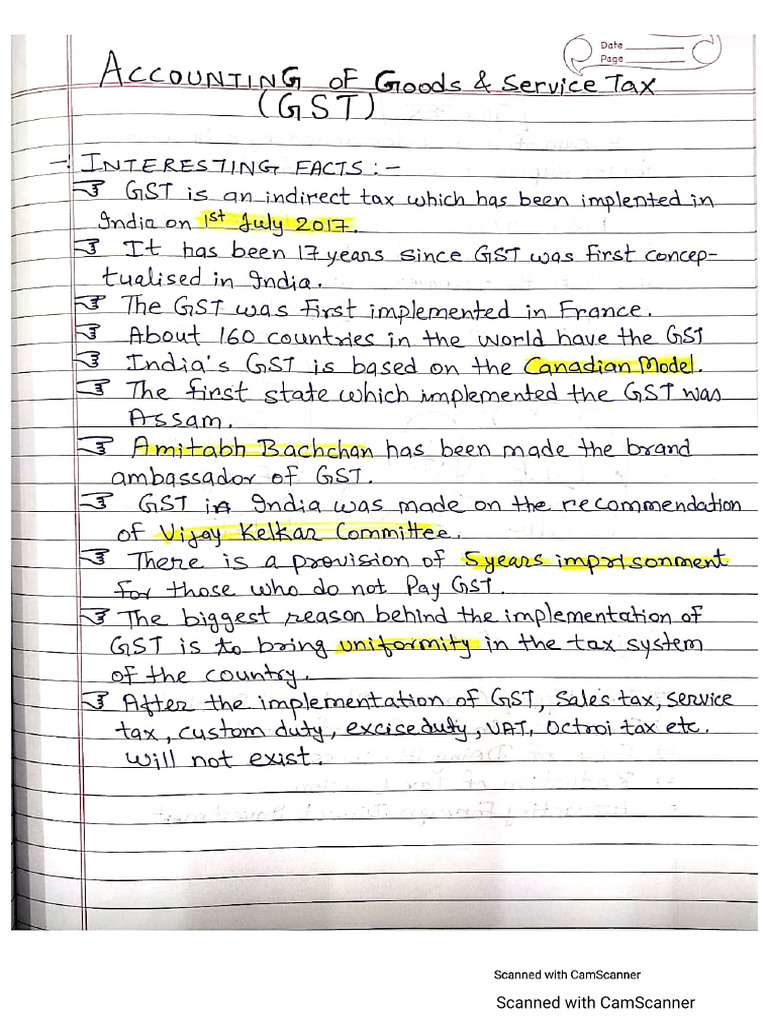 Date
Page
ACCOUNTING OF Goods & Service Tax
(GST)
→ INTERESTING FACTS :-
GST is an indirect tax which has been implented in
India on 1st July 2017.
It has been 17 years since GST was first concep-
tualised in India.
The GST was first implemented in France.
About 160 countries in the world have the GST
India's GST is based on the Canadian Model.
The first state which implemented the GST was
Assam.
Amitabh Bachchan has been made the brand
ambassador of GST.
GST in India was made on the recommendation
of Vijay Kelkar Committee.
There is a provision of 5 years imprisonment
for those who do not Pay GST.
The biggest reason behind the implementation of
GST is to bring uniformity in the tax system
of the country.
After the implementation of GST, Sales tax, service
tax, custom duty, excise duty, VAT, Octroi tax etc.
will not exist.
Scanned with CamScanner
Scanned with CamScanner